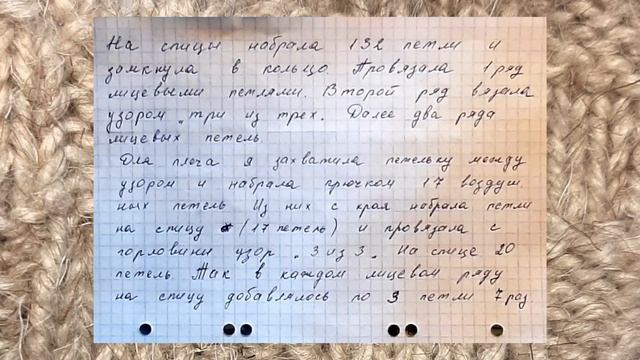 На спицы набрала 132 петли и
замкнула в кольцо. Провязала 1 ряд
лицевыми петлями. Второй ряд вязала
узором „три из трех". Далее два ряда
лицевых петель.
Для плеча я захватила петельку между
узором и набрала крючком 17 воздуш
ных петель. Из них с края набрала петли
на спицу (17 петель) и провязала с
горловины узор „3 из 3". На спице 20
петель. Так в каждом лицевом ряду
на спицу добавлялось по 3 петли 7 раз.